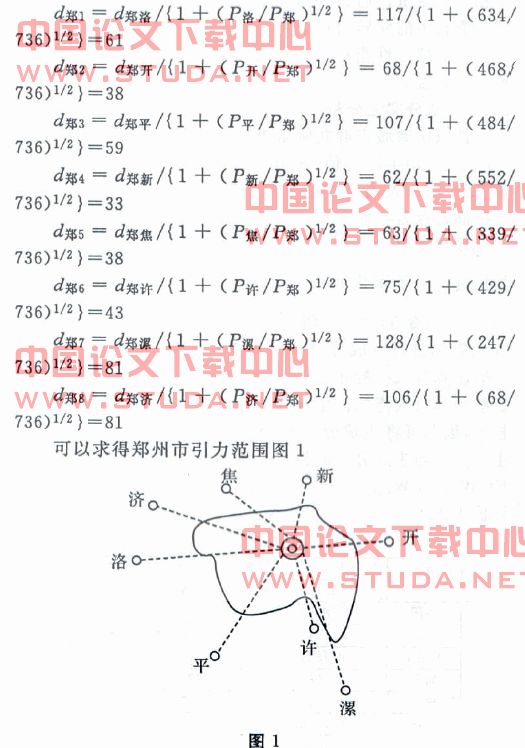 d郑1 = d郑洛/{1 + (P洛/P郑)1/2} = 117/{1 + (634/
736)1/2}=61
d郑2 = d郑开/{1 + (P开/P郑)1/2} = 68/{1 + (468/
736)1/2}=38
d郑3 = d郑平/{1 + (P平/P郑)1/2} = 107/{1 + (484/
736)1/2}=59
d郑4 = d郑新/{1 + (P新/P郑)1/2} = 62/{1 + (552/
736)1/2}=33
d郑5 = d郑焦/{1 + (P焦/P郑)1/2} = 63/{1 + (339/
736)1/2}=38
d郑6 = d郑许/{1 + (P许/P郑)1/2} = 75/{1 + (429/
736)1/2}=43
d郑7 = d郑漯/{1 + (P漯/P郑)1/2} = 128/{1 + (247/
736)1/2}=81
d郑8 = d郑济/{1 + (P济/P郑)1/2} = 106/{1 + (68/
736)1/2}=81
可以求得郑州市引力范围图 1
焦
新
济
开
洛
许
平
漯
图 1
中国论文下载中心
WWW.STUDA.NET
中国论文下载中心
WWW.STUDA.NET
中国论文下载中心
WWW.STUDA.NET
中国论文下载中心
WWW.STUDA.NET